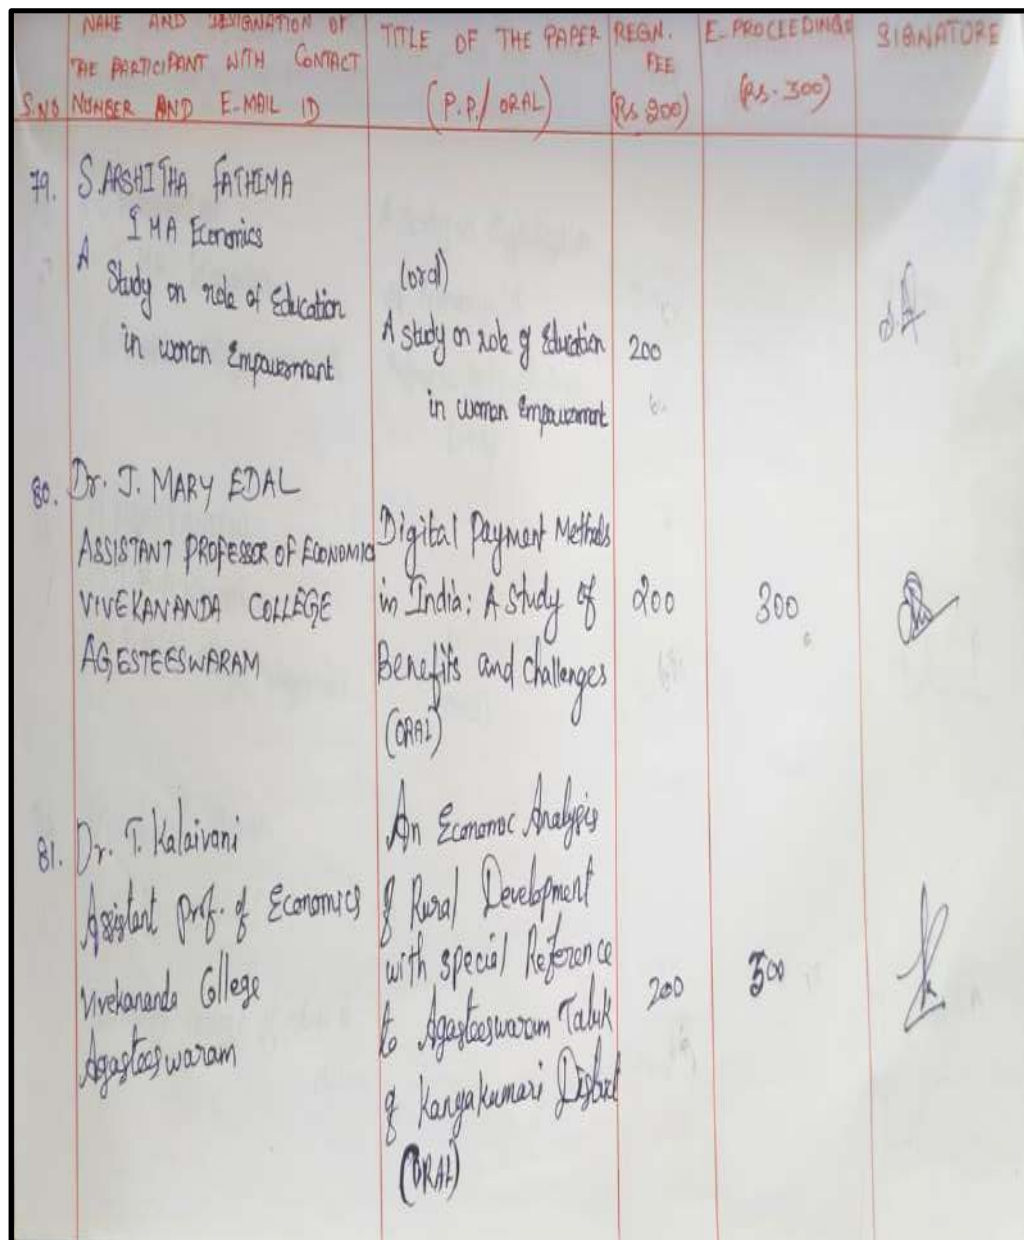 S.NO
NAME AND DESIGNATION OF
THE PARTICIPANT WITH CONTACT
NUMBER AND E-MAIL ID
TITLE OF THE PAPER
(P.P./ ORAL)
REGN.
FEE
(Rs 200)
E-PROCEEDINGS
(Rs. 300)
SIGNATORE
79.
S.ARSHITHA FATHIMA
I MA Economics
A
Study on role of Education
in woman Empowerment
(oral)
A study on role of Education
in woman Empowerment
200
80.
Dr. J. MARY EDAL
ASSISTANT PROFESSOR OF ECONOMIC
VIVEKANANDA COLLEGE
AGESTEESWARAM
Digital Payment Methods
in India: A Study of
Benefits and Challenges
(ORAL)
200
300
81.
Dr. T. Kalaivani
Assistant Prof. of Economics
Vivekananda College
Agasteeswaram
An Economic Analysis
of Rural Development
with special Reference
to Agasteeswaram Taluk
of Kanyakumari District
(ORAL)
200
300